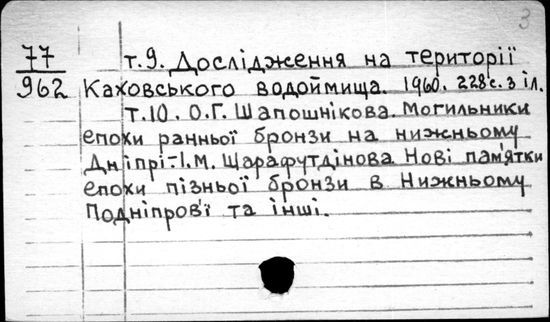 3
77 т.9. Дослідження на території
962 Каховського водоймища. 1960. 228 с. з іл.
т.10. О.Г. Шапошнікова. Могильники
епохи ранньої бронзи на нижньому
Дніпрі-І.М. Щарафутдінова Нові пам'ятки
епохи пізньої бронзи в Нижньому
Подніпров'ї та інші.